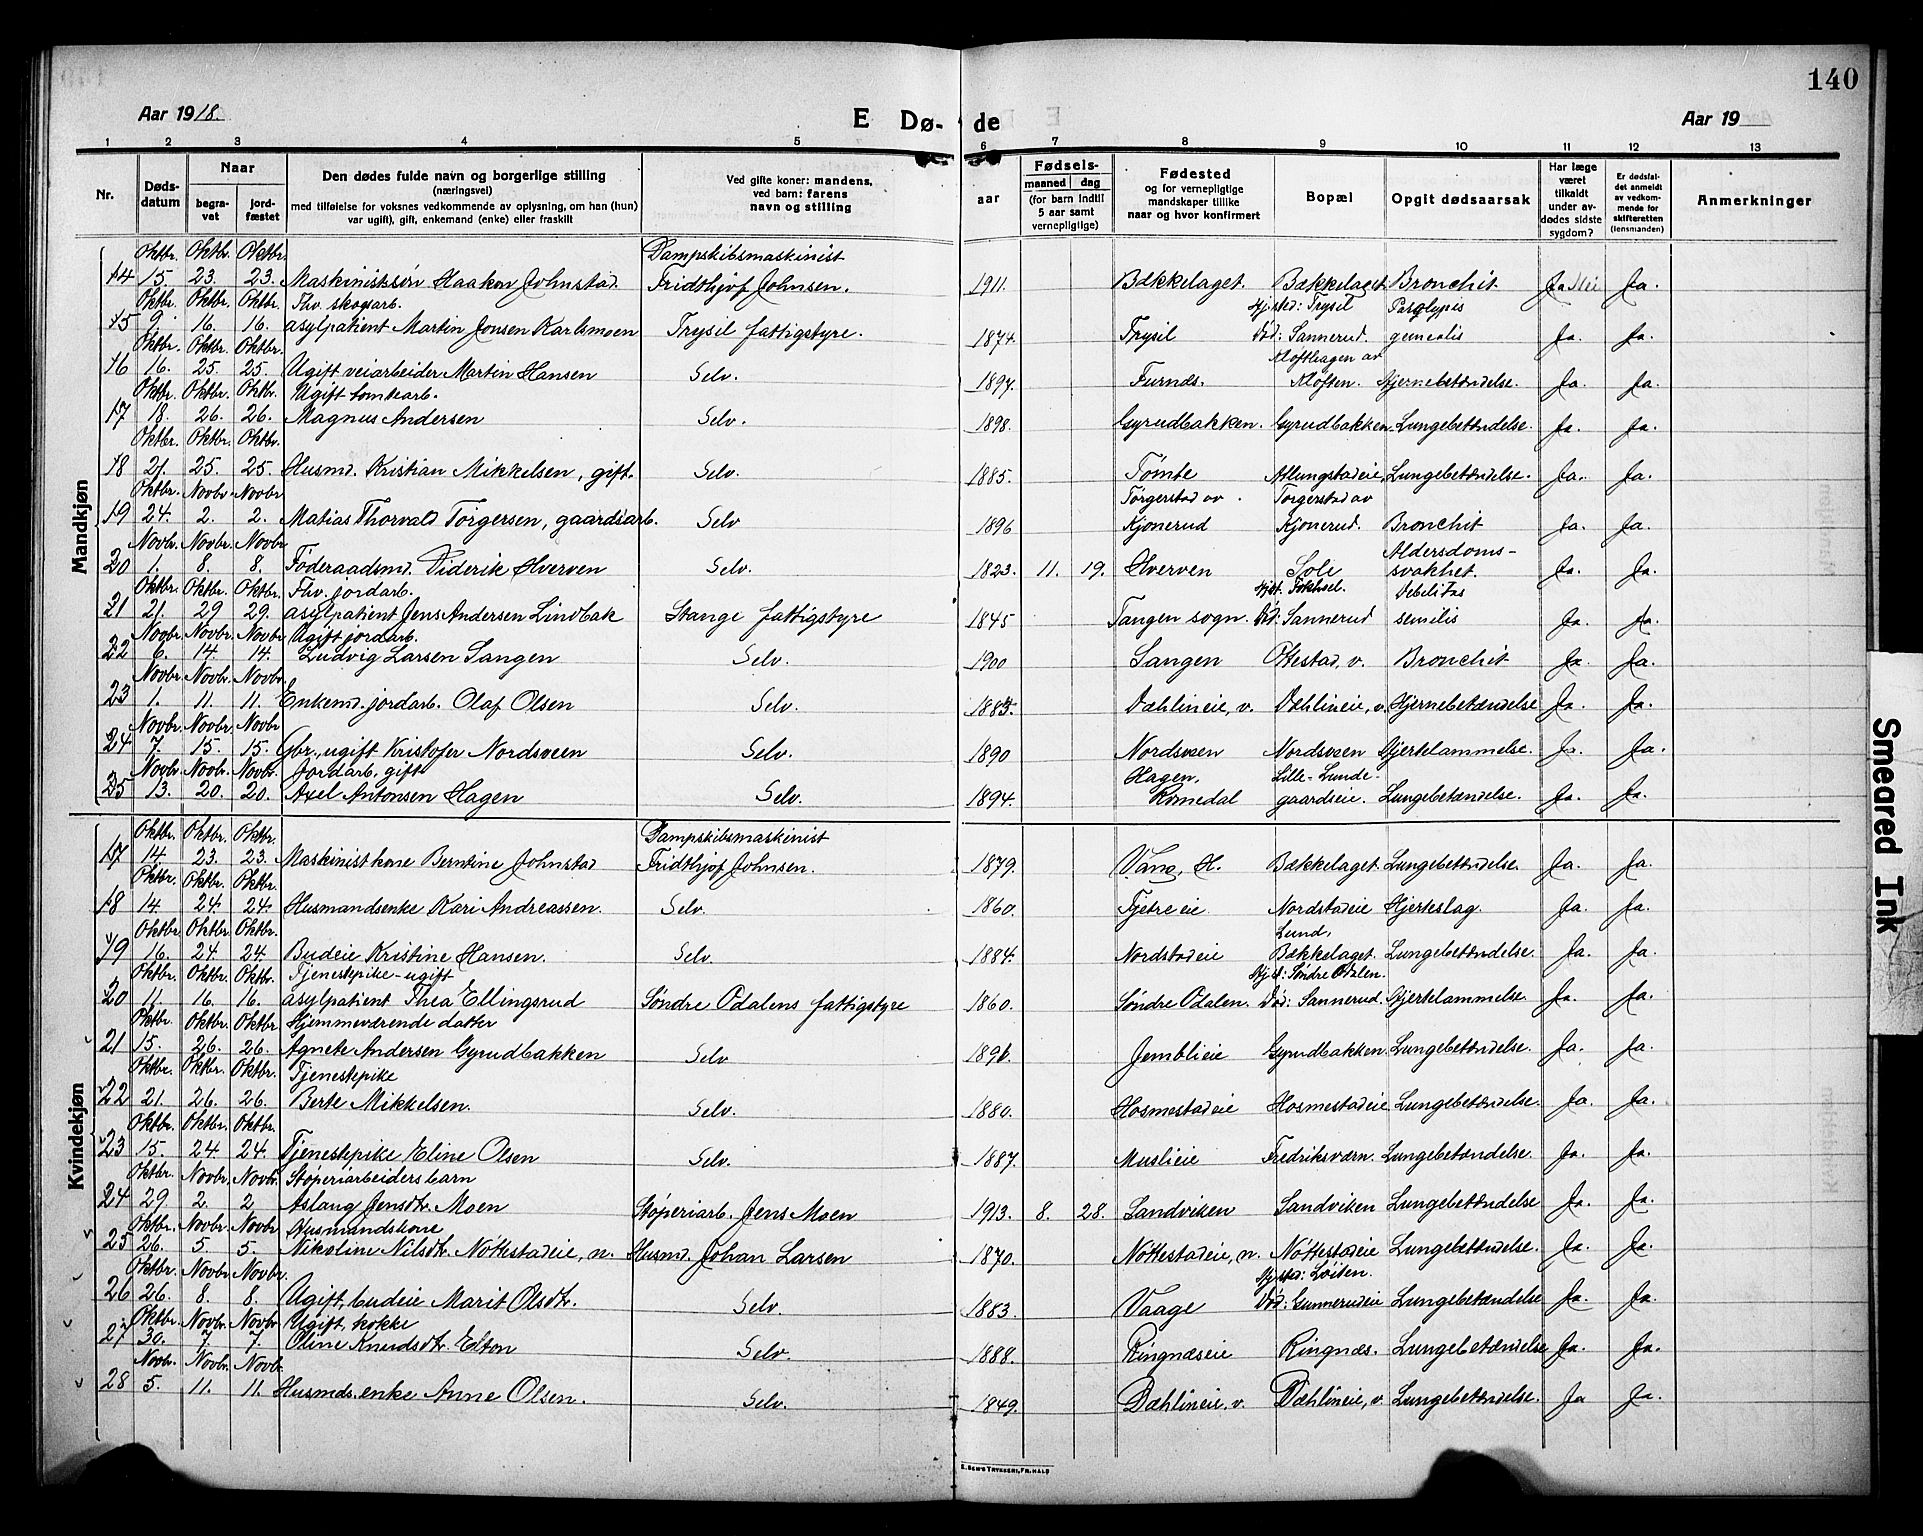 140
Aar 1918.
E Dø-
de
Aar 19
1 2 3 4 5 6 7 8 9 10 11 12 13
Nr.
Døds-
datum
Naar
begra-
vet
jord-
fæstet
Den dødes fulde navn og borgerlige stilling
(næringsvei)
med tilføielse for voksnes vedkommende av oplysning, om han (hun)
var ugift), gift, enkemand (enke) eller fraskilt
Ved gifte koner: mandens,
ved barn: farens
navn og stilling
aar
Fødsels-
maaned dag
(for barn indtil
5 aar samt
vernepligtige)
Fødested
og for vernepligtige
mandskaper tillike
naar og hvor konfirmert
Bopæl
Opgit dødsaarsak
Har læge
været
tilkaldt
under av-
dødes sidste
sygdom?
Er dødsfal-
det anmeldt
av vedkom-
mende for
skifteretten
(lensmanden)
Anmerkninger
Mandkjøn
Oktbr. Oktbr. Oktbr. Dampskibsmaskinist
14 15. 23. 23. Maskinistsøn Haakon Johnstad Fridthjof Johnsen. 1911. Bækkelaget. Bækkelaget Bronchit Ja Ja.
Oktbr. Oktbr. Oktbr. Fhv. skogsarb. Hjsted: Trysil Paralysis
15 9. 16. 16. asylpatient Martin Jonsen Karlsmoen Trysil fattigstyre. 1874. Trysil Død: Sannerud. generalis Ja. Ja.
Oktbr. Oktbr. Oktbr. Klofthagen av
16 16. 25. 25. Ugift veiarbeider Martin Hansen Selv. 1897. Furnæs. Kloften. Hjernebetændelse. Ja. Ja.
Oktbr. Oktbr. Oktbr. Ugift tomtearb.
17 18. 26. 26. Magnus Andersen Selv. 1898. Gyrudbakken. Gyrudbakken Lungebetændelse. Ja. Ja.
Oktbr. Oktbr. Oktbr.
18 21. 25. 25. Husmd. Kristian Mikkelsen, gift. Selv. 1885. Tømte Atlungstadeie, Lungebetændelse. Ja. Ja.
Oktbr. Novbr. Novbr Torgerstad av Torgerstad av
19 24. 2. 2. Matias Thorvald Torgersen, gaardsarb. Selv 1896 Kjonerud Kjonerud. Bronchit Ja. Ja.
Novbr. Novbr. Novbr Aldersdoms-
20 1. 8. 8. Føderaadsmd. Diderik Hverven Selv. 1823. 11. 19. Hverven Sole svakhet. Ja. Ja.
Oktbr. Oktbr. Oktbr. Fhv. jordarb. Debilitas
21 21. 29 29. asylpatient Jens Andersen Lindbak Stange fattigstyre 1845 Tangen sogn. Død: Sannerud senilis Ja. Ja.
Novbr. Novbr. Novbr Ugift jordarb.
22 6. 14. 14. Ludvig Larsen Sangen Selv. 1900 Sangen Ottestad, v. Bronchit Ja. Ja.
Novbr. Novbr. Novbr.
23 1. 11. 11. Enkemd. jordarb. Olaf Olsen Selv. 1885. Dæhlineie, v. Dæhlineie, v. Hjernebetændelse Ja. Ja.
Novbr. Novbr. Novbr
24 7. 15. 15. Gbr., ugift Kristofer Nordsveen Selv. 1890 Nordsveen Nordsveen Hjertelammelse. Ja. Ja.
Novbr. Novbr. Novbr. Jordarb. gift Hagen, Lille-Lunde-
25 13. 20. 20. Axel Antonsen Hagen Selv. 1894. Romedal gaardseie. Lungebetændelse. Ja. Ja.
Kvindekjøn
Oktbr. Oktbr. Oktbr. Dampskibsmaskinist
17 14. 23. 23. Maskinistkone Berntine Johnstad Fridthjof Johnsen. 1879. Vang, H. Bækkelaget. Lungebetændelse. Ja. Ja.
Oktbr. Oktbr. Oktbr.
18 14. 24. 24. Husmandsenke Kari Andreassen. Selv. 1860. Fjetre eie. Nordstadeie Hjerteslag. Ja. Ja.
Oktbr. Oktbr. Oktbr. Lund,
19 16. 24. 24. Budeie Kristine Hansen. Selv. 1884. Nordstadeie Bækkelaget. Lungebetændelse. Ja. Ja.
Oktbr. Oktbr. Oktbr. Tjenestepike - ugift Hjst: Søndre Odalen.
20 11. 16. 16. asylpatient Thea Ellingsrud Søndre Odalens fattigstyre 1860. Søndre Odalen. Død: Sannerud. Hjertelammelse. Ja. Ja.
Oktbr. Oktbr. Oktbr Hjemmeværende datter
21 15. 26. 26. Agnete Andersen Gyrudbakken Selv 1891. Jemblieie Gyrudbakken. Lungebetændelse. Ja. Ja.
Oktbr. Oktbr. Oktbr. Tjenestepike
22 21. 26. 26. Berte Mikkelsen. Selv. 1880. Hosmestadeie Hosmestadeie Lungebetændelse. Ja. Ja.
Oktbr. Oktbr. Oktbr.
23 15. 24. 24. Tjenestepike Eline Olsen Selv. 1887. Muslieie Fredriksværn. Lungebetændelse. Ja. Ja.
Oktbr. Novbr. Novbr. Støperiarbeidersbarn
24 29 2. 2 Aslaug Jensdtr. Moen Støperiarb. Jens Moen 1913. 8. 28. Sandviken Sandviken Lungebetændelse Ja. Ja.
Oktbr. Novbr. Novbr Husmandskone
25 26. 5. 5. Nikoline Nilsdtr. Nøttestadeie, n. Husmd. Johan Larsen 1870. Nøttestadeie, n. Nøttestadeie Lungebetændelse. Ja. Ja.
Oktbr. Novbr. Novbr. Hjsted: Løiten.
26 26. 8. 8. Ugift, budeie Marit Olsdtr. Selv. 1883. Vaage Død: Gunnerudeie Lungebetændelse Ja. Ja.
Oktbr. Novbr. Novbr Ugift, kokke
27 30. 7. 7. Oline Knudsdtr. Elton Selv. 1888. Ringnæseie Ringnæs. Lungebetændelse Ja. Ja.
Novbr. Novbr. Novbr.
28 5. 11. 11. Husmds.enke Anne Olsen. Selv. 1849. Dæhlineie, v. Dæhlineie, v. Lungebetændelse. Ja Ja.
Smeared Ink